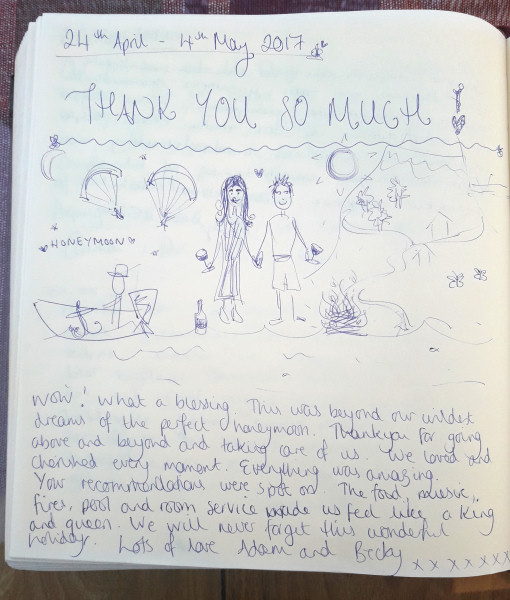 24th April - 4th May 2017
THANK YOU SO MUCH!
HONEYMOON
WOW! What a blessing. This was beyond our wildest
dreams of the perfect honeymoon. Thankyou for going
above and beyond and taking care of us. We loved and
cherished every moment. Everything was amazing.
Your recommendations were spot on. The food, music,
fires, pool and room service made us feel like a King
and queen. We will never forget this wonderful
holiday. Lots of love Adam and Becky x x x x x x x